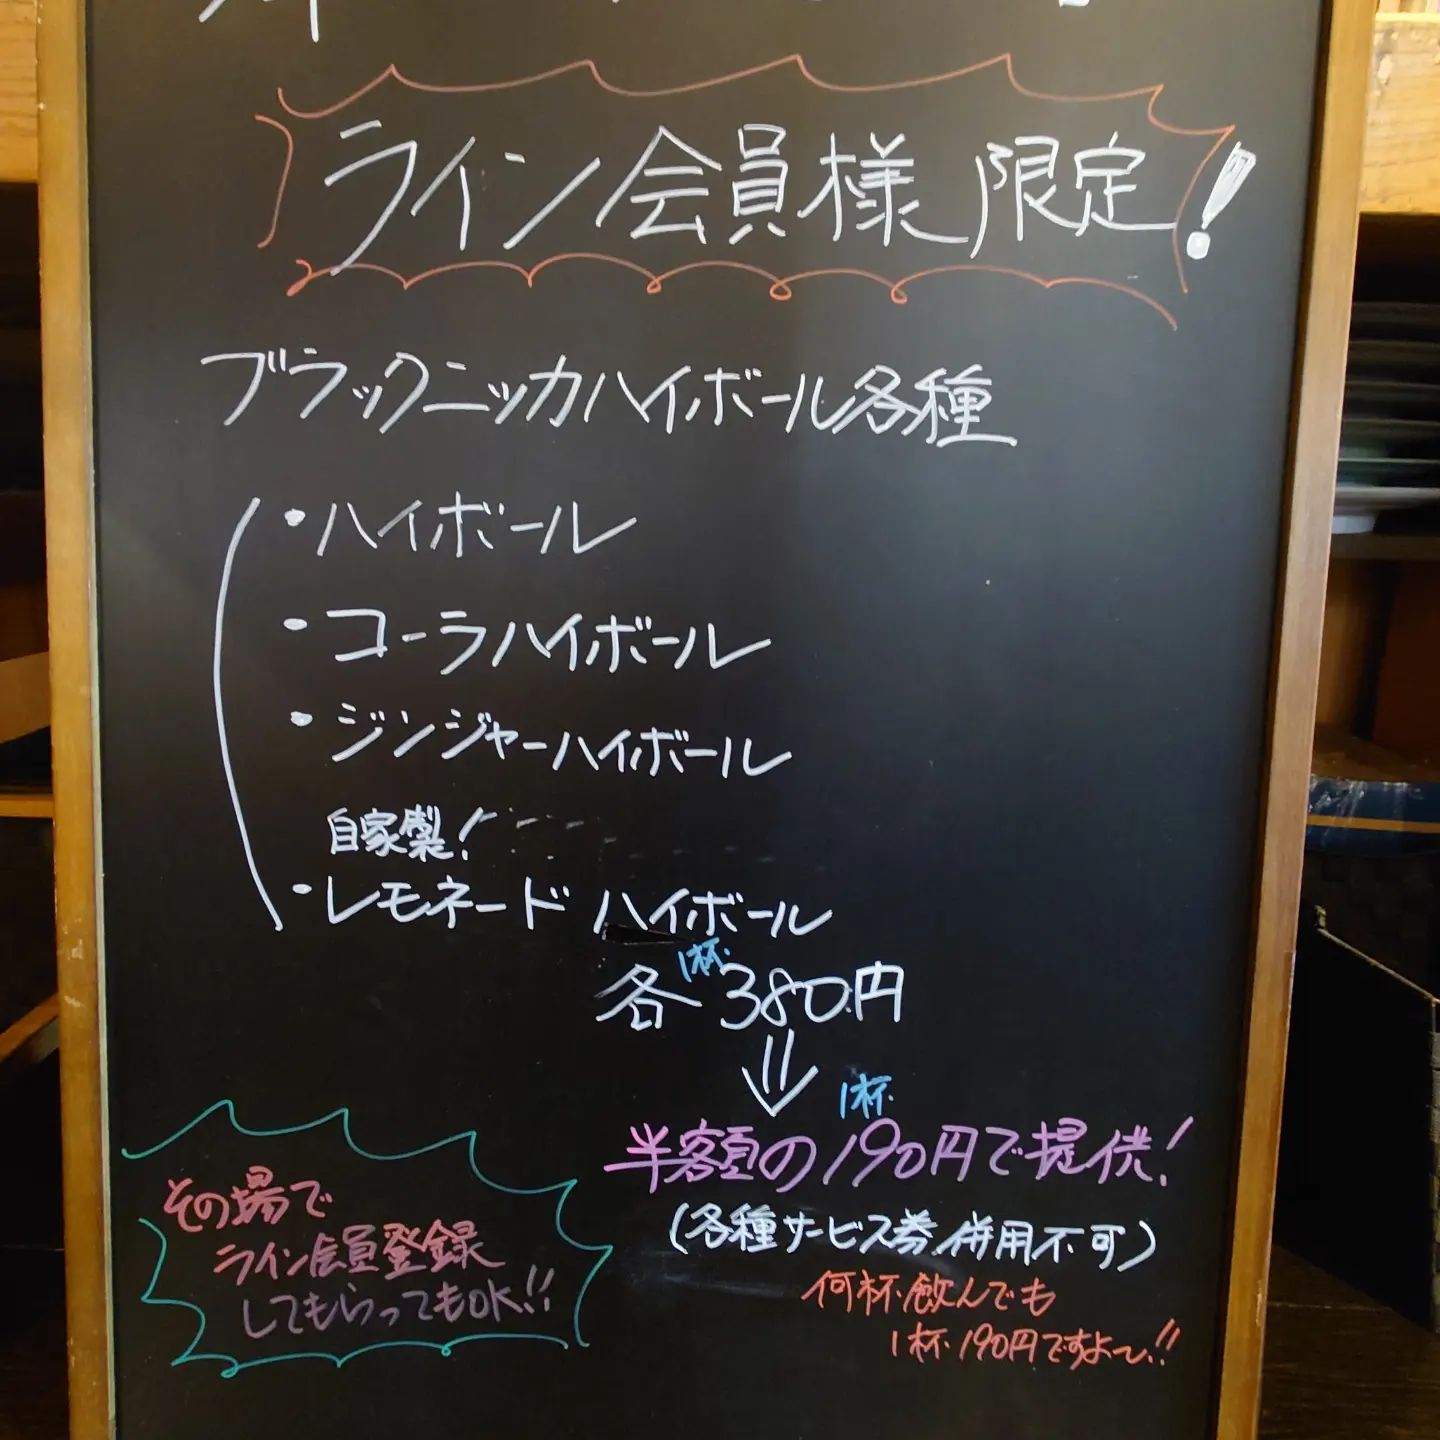 ライン会員様限定!
ブラックニッカハイボール各種
・ハイボール
・コーラハイボール
・ジンジャーハイボール
自家製!
・レモネードハイボール
各1杯380円
⇓
1杯
半額の190円で提供!
(各種サービス券併用不可)
何杯飲んでも
1杯190円ですよ〜!!
その場で
ライン会員登録
してもらってもOK!!